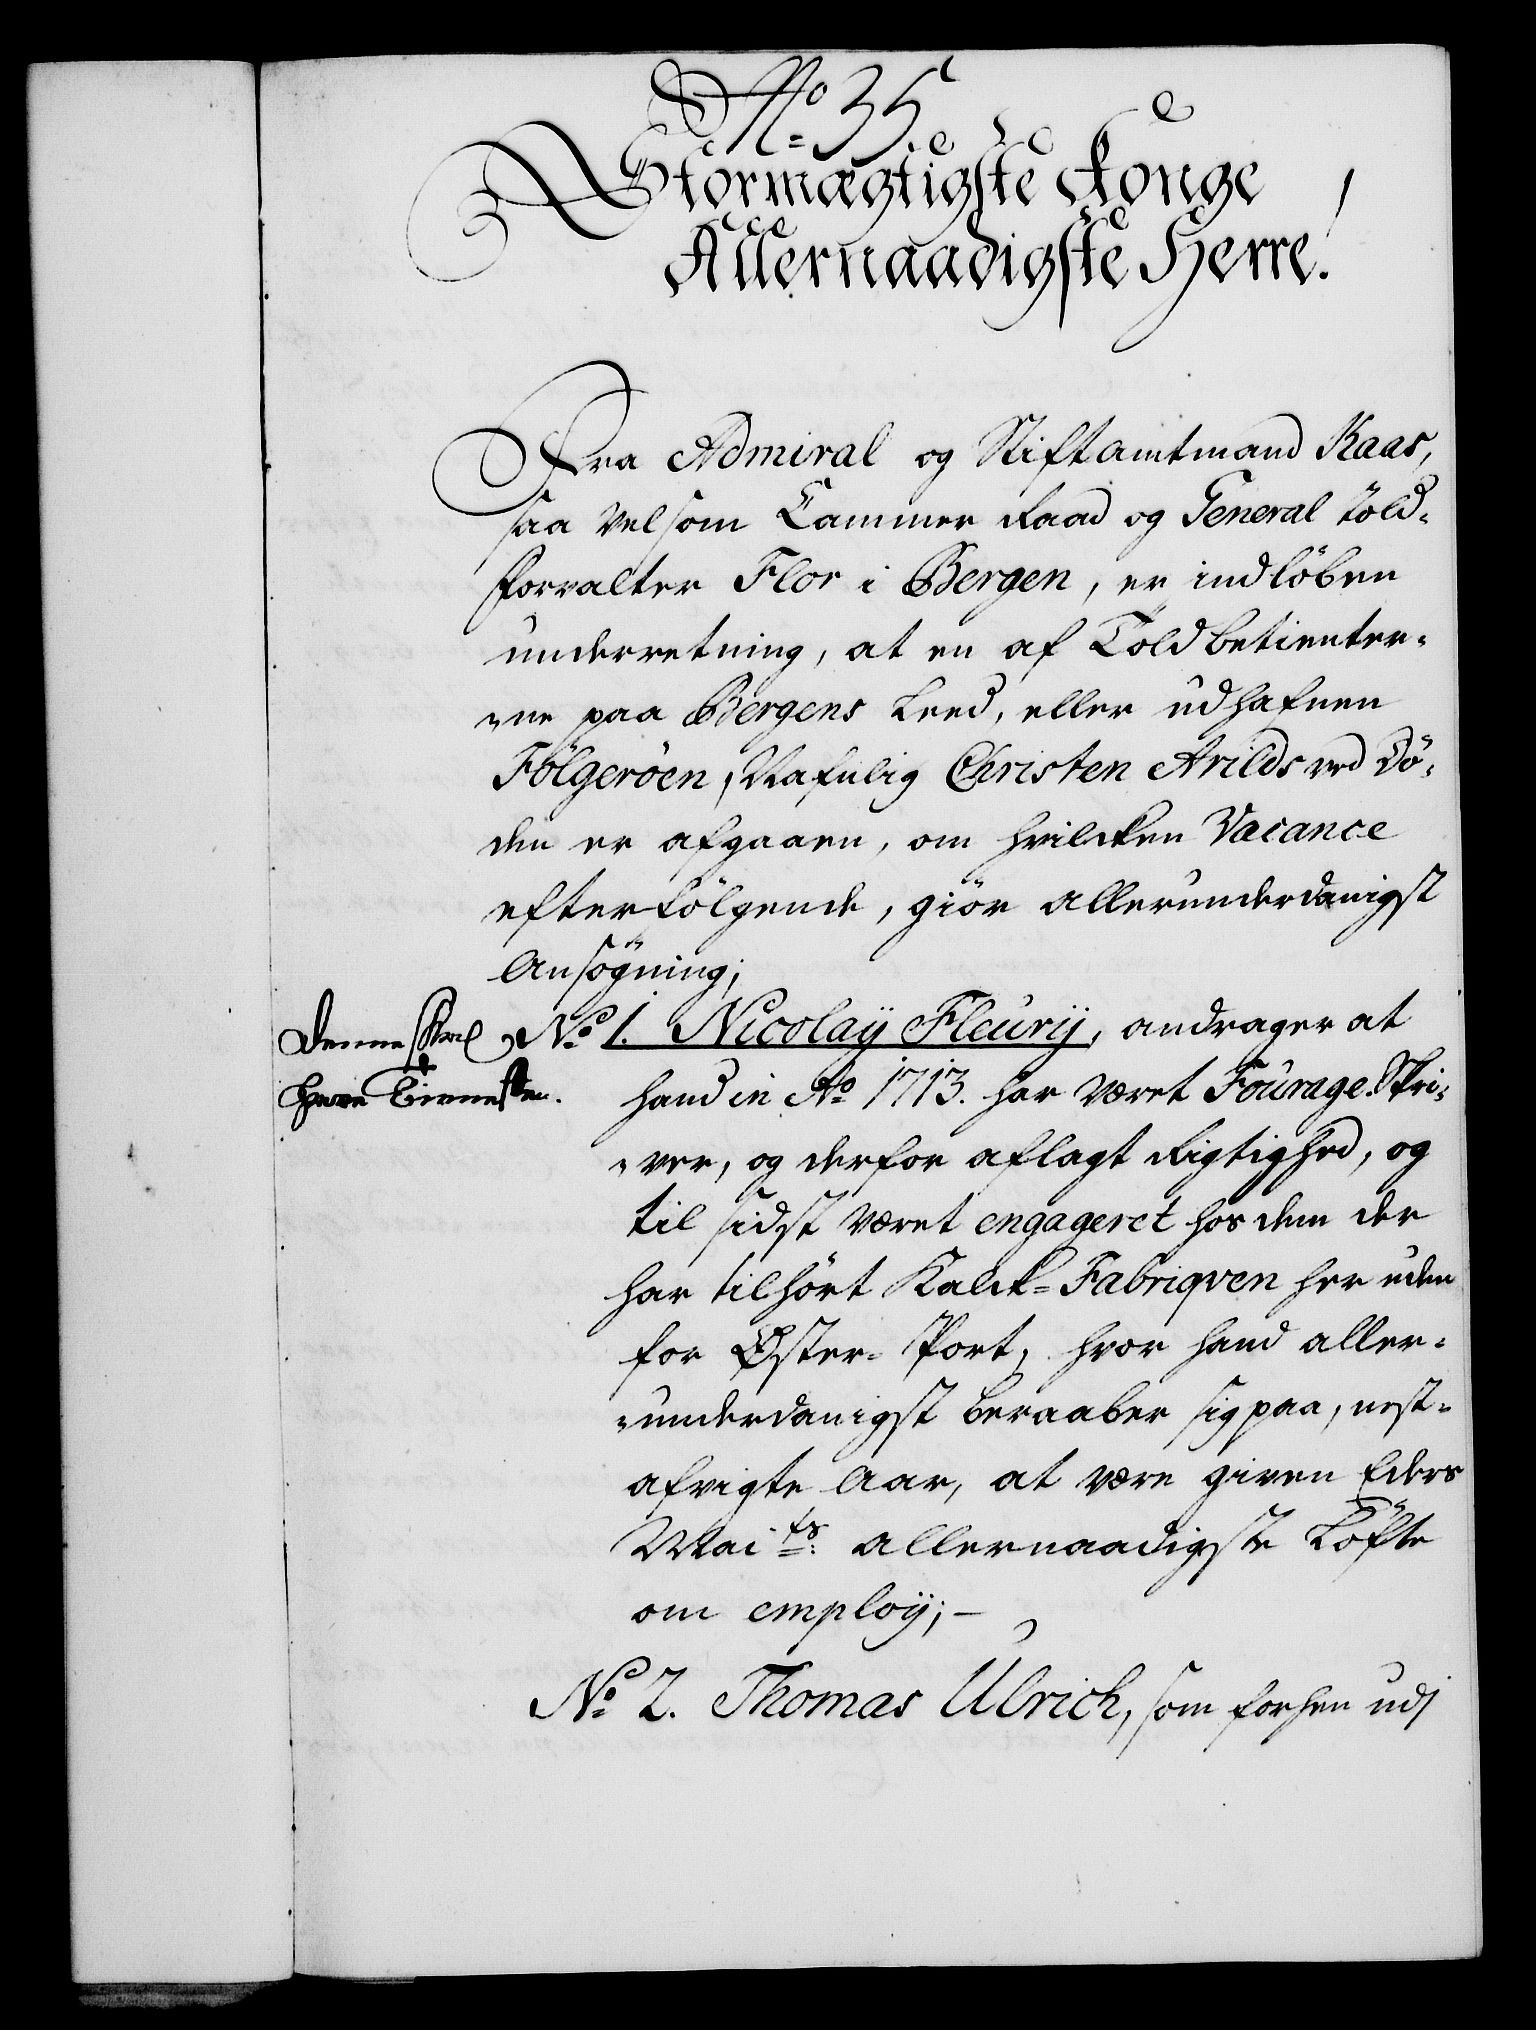 No 35
Stormægtigste Konge
Allernaadigste Herre!
Fra Admiral og Stiftamtmand Kaas,
saa vel som Cammer Raad og General told-
forvalter Flor i Bergen, er indlöben
underretning, at en af Toldbetienter-
ne paa Bergens Leed, eller udhafnen
Fölgeröen, Nafnlig Christen Arilds ved dö-
den er afgaaen, om hvilcken Vacance
efterfölgende, giör allerunderdanigst
Ansögning;
Denne skal
have Tienesten.
No 1. Nicolaÿ Fleurÿ, andrager at
hand in Ao 1713. har været Fourage-Skri-
ver, og derfor aflagt Rigtighed, og
til sidst været engageret hos dem der
har tilhört Kalck-Fabriqven her uden
for Öster-Port, hvor hand aller-
underdanigst beraaber sig paa, nest-
afvigte Aar, at være given Eders
Maits allernaadigste Löfte
om employ;-
No 2. Thomas Ulrich, som forhen udj